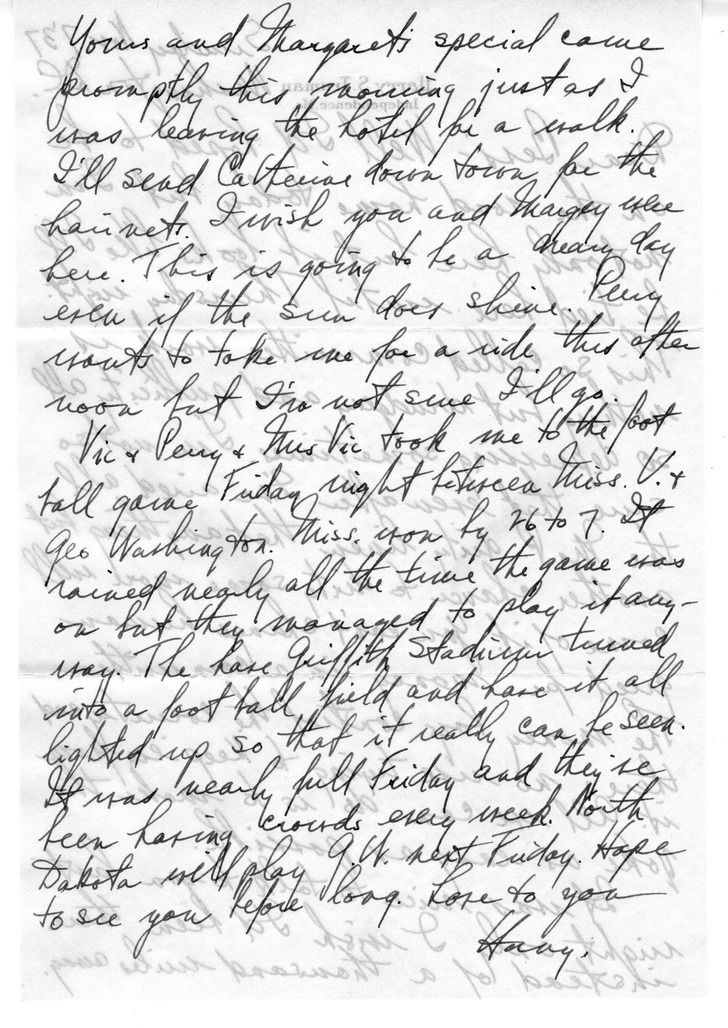 Yours and Margaret's special came
promptly this morning just as I
was leaving the hotel for a walk.
I'll send Catherine down town for the
hairnets. I wish you and Margey were
here. This is going to be a dreary day
even if the sun does shine. Perry
wants to take me for a ride this after
noon but I'm not sure I'll go.
Vic & Perry & Mrs Vic took me to the foot
ball game Friday night between Miss. U. &
Geo Washington. Miss. won by 26 to 7. It
rained nearly all the time the game was
on but they managed to play it any-
way. The have Griffith Stadium turned
into a foot ball field and have it all
lighted up so that it really can be seen.
It was nearly full Friday and they've
been having crowds every week. North
Dakota will play G.W. next Friday. Hope
to see you before long. Love to you
Harry.